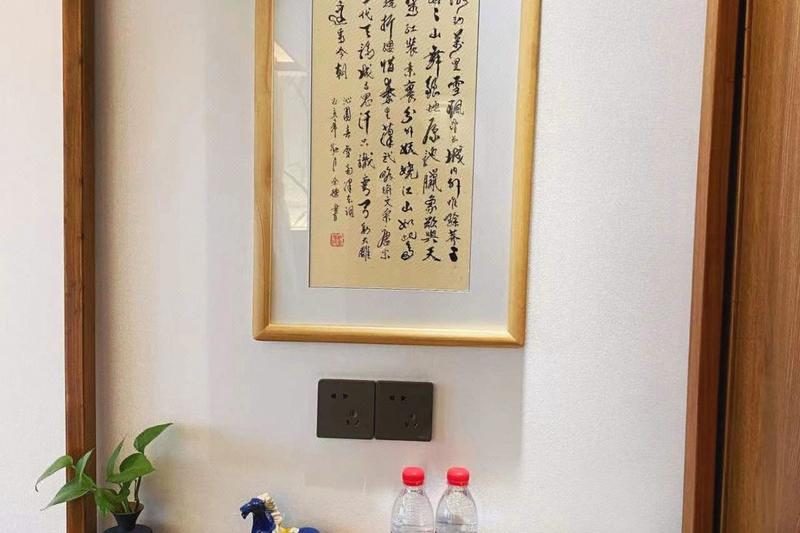 封萬里雪飄望長城内外惟餘莽々
々山舞銀蛇原馳臘象欲與天
紅裝素裹分外妖嬈江山如此多
競折腰惜秦皇漢武略輸文采唐宗
代天驕成吉思汗只識彎弓射大雕
還看今朝
沁園春雪毛澤東詞
年月書